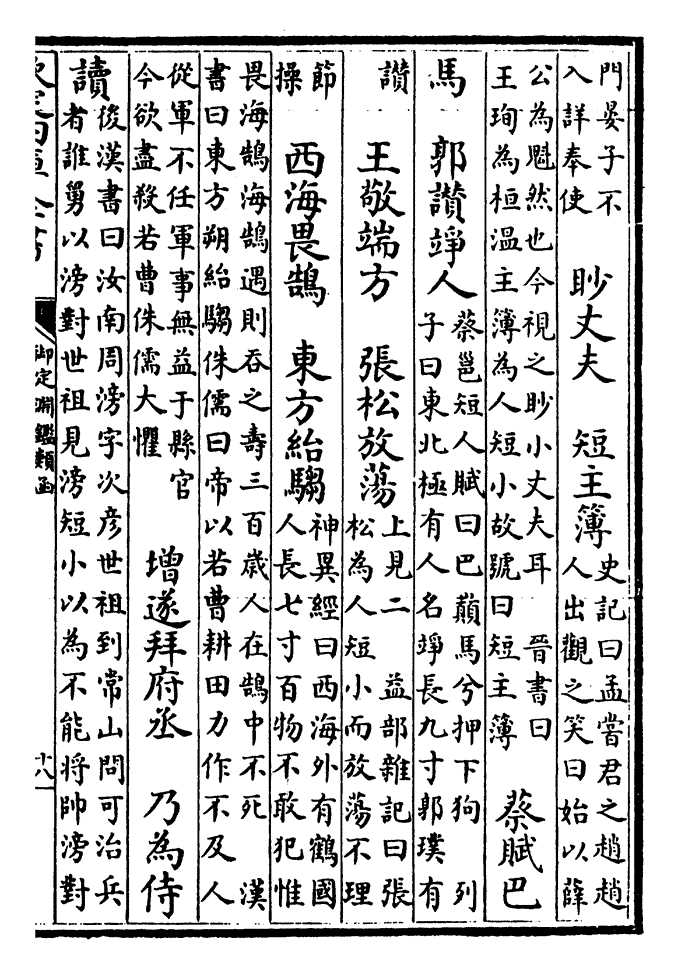 門晏子不
入詳奉使
眇丈夫　短主簿
史記曰孟嘗君之趙趙
人出觀之笑曰始以薛
公為魁然也今視之眇小丈夫耳　晉書曰
王珣為桓溫主簿為人短小故號曰短主簿
蔡賦巴
馬　郭讃竫人
蔡邕短人賦曰巴巔馬兮押下狗　列
子曰東北極有人名竫長九寸郭璞有
讃　王敬端方　張松放蕩
上見二　益部雜記曰張
松為人短小而放蕩不理
節
操
西海畏鵠　東方紿騶
神異經曰西海外有鶴國
人長七寸百物不敢犯惟
畏海鵠海鵠遇則吞之壽三百歳人在鵠中不死　漢
書曰東方朔紿騶侏儒曰帝以若曹耕田力作不及人
從軍不任軍事無益于縣官
今欲盡殺若曹侏儒大懼
增遂拜府丞　乃為侍
讀
後漢書曰汝南周滂字次彥世祖到常山問可治兵
者誰舅以滂對世祖見滂短小以為不能將帥滂對
欽定四庫全書
御定淵鑑類函
十八